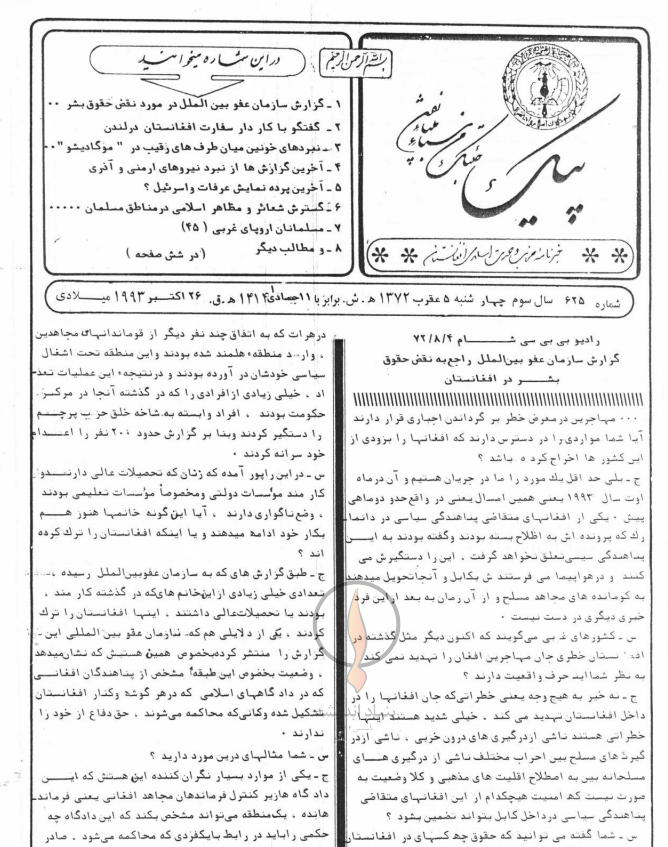 بسم الله الرحمن الرحیم
در این شماره میخوانید
۱ ـ گزارش سازمان عفو بین الملل در مورد نقض حقوق بشر ۰۰
۲ ـ گفتگو با کار دار سفارت افغانستان درلندن
۳ ـ نبردهای خونین میان طرف های رقیب در " موگادیشو "۰۰
۴ ـ آخرین گزارش ها از نبرد نیروهای ارمنی و آذری
۵ ـ آخرین پرده نمایش عرفات واسرئیل ؟
۶ ـ گسترش شعائر و مظاهر اسلامی درمناطق مسلمان ۰۰۰۰۰
۷ ـ مسلمانان اروپای غربی ( ۴۵ )
۸ ـ و مطالب دیگر
( در شش صفحه )
پیک
خبرنامه
شماره ۶۲۵ سال سوم چهار شنبه ۵ عقرب ۱۳۷۲ ه . ش. برابر با ۱۱ جمادی ۱ ۱۴۱۴ ه .ق. ۲۶ اکتبر ۱۹۹۳ میلادی
رادیو بی بی سی شام ۷۲/۸/۴
گزارش سازمان عفو بین‌الملل راجع به نقض حقوق
بشر در افغانستان
۰۰۰ مهاجرین درمعرض خطر بر گرداندن اجباری قرار دارند
آیا شما مواردی را در دسترس دارند که افغانها را بزودی از
این کشور ها اخراج کرد ه باشد ؟
ج ـ بلی حد اقل یك مورد را ما در جریان هستیم و آن درماه
اوت سال ۱۹۹۳ یعنی همین امسال یعنی در واقع‌حدو دوماهی
پیش ۰ یکی از افغانهای متقاضی پناهندگی سیاسی در دانما
رك که پرونده اش به اظلاح بسته بودند وگفته بودند به این
پناهندگی سیسی‌تعلق نخواهد گرفت ، این را دستگیرش می
کنند و درهواپیما می فرستند ش بکابل و آنجاتحویل میدهند
به کوماندە های مجاهد مسلح و از آن زمان به بعد از این فرد
خبری دیگری در دست نیست ۰
س ـ کشورهای غربی می‌گویند که اکنون دیگر مثل گذشته در
افغانستان خطری جان مهاجرین افغان را تهدید نمی کند
به نظر شما ایند حرف واقعیت دارند ؟
ج ـ نه خیر به هیچ وجه یعنی خطراتی‌که جان افغانها را در
داخل افغانستان تهدید می کند ، خیلی شدید هستند اینها
خطراتی هستند ناشی ازدرگیری های درون خربی ، ناشی ازدر
گیری های مسلح بین احراب مختلف ناشی از درگیری های
مسلحانه بین به اصطلاح اقلیت های مذهبی و کلا وضعیت به
صورت نیست که امنیت هیچکدام از این افغانهای متقاضی
پناهندگی سیاسی درداخل کابل بتواند تضمین بشود ؟
س ـ شما گفته می توانید که حقوق چه کسهای در افغانستان
درهرات که به اتفاق چند نفر دیگر از قوماندانهای مجاهدین
، وارد منطقهء هلمند شده بودند واین منطقه تحت اشغال
سیاسی خودشان در آورده بودند و درنتیجهء این عملیات تعد
اد ، خیلی زیادی ازافرادی را که در گذشته آنجا در مرکز
حکومت بودند ، افراد وابسته به شاخه خلق حزب پرچم
را دستگیر کردند وبنا بر گزارش حدود ۲۰۰ نفر را اعدام
خود سرانه کردند ۰
س ـ در این راپور آمده که زنان که تحصیلات عالی دارند و
کار مند موئسات دولتی ومخصوصاً موئسات تعلیمی بودند
، وضع ناگواری دارند ، آیا این گونه خانمها هنوز هم
بکار خود ادامه میدهند و یا اینکه افغانستان را ترك کرده
اند ؟
ج ـ طبق گزارش های که به سازمان عفوبین‌الملل رسیده ،
تعدادی خیلی زیادی از این‌خانم های‌که در گذشته کار مند ،
بودند یا تحصیلات‌عالی داشتند ، اینها افغانستان را ترك
کردند ، یکی از دلایلی هم که سازمان عفو بین المللی این
گزارش را منتشر کرده‌بخصوص همین هستیش که نشان‌میدهد
، وضعیت بخصوص این طبقهء مشخص از پناهندگان افغانی
که در داد گاههای اسلامی که درهر گوشه وکنار افغانستان
تشکیل شده وکانی‌که محاکمه می‌شوند ، حق‌دفاع از خود را
ندارند ۰
س ـ شما مثالهای درین مورد دارید ؟
ج ـ یکی از موارد بسیار نگران کننده این هستش که این
داد گاه هازیر کنترل فرماندهان مجاهد افغانی یعنی فرماند
هانده ، یک‌منطقه می‌تواند مشخص بکند که این دادگاه چه
حکمی راباید در رابط بایکفردی که محاکمه می‌شود ، صادر